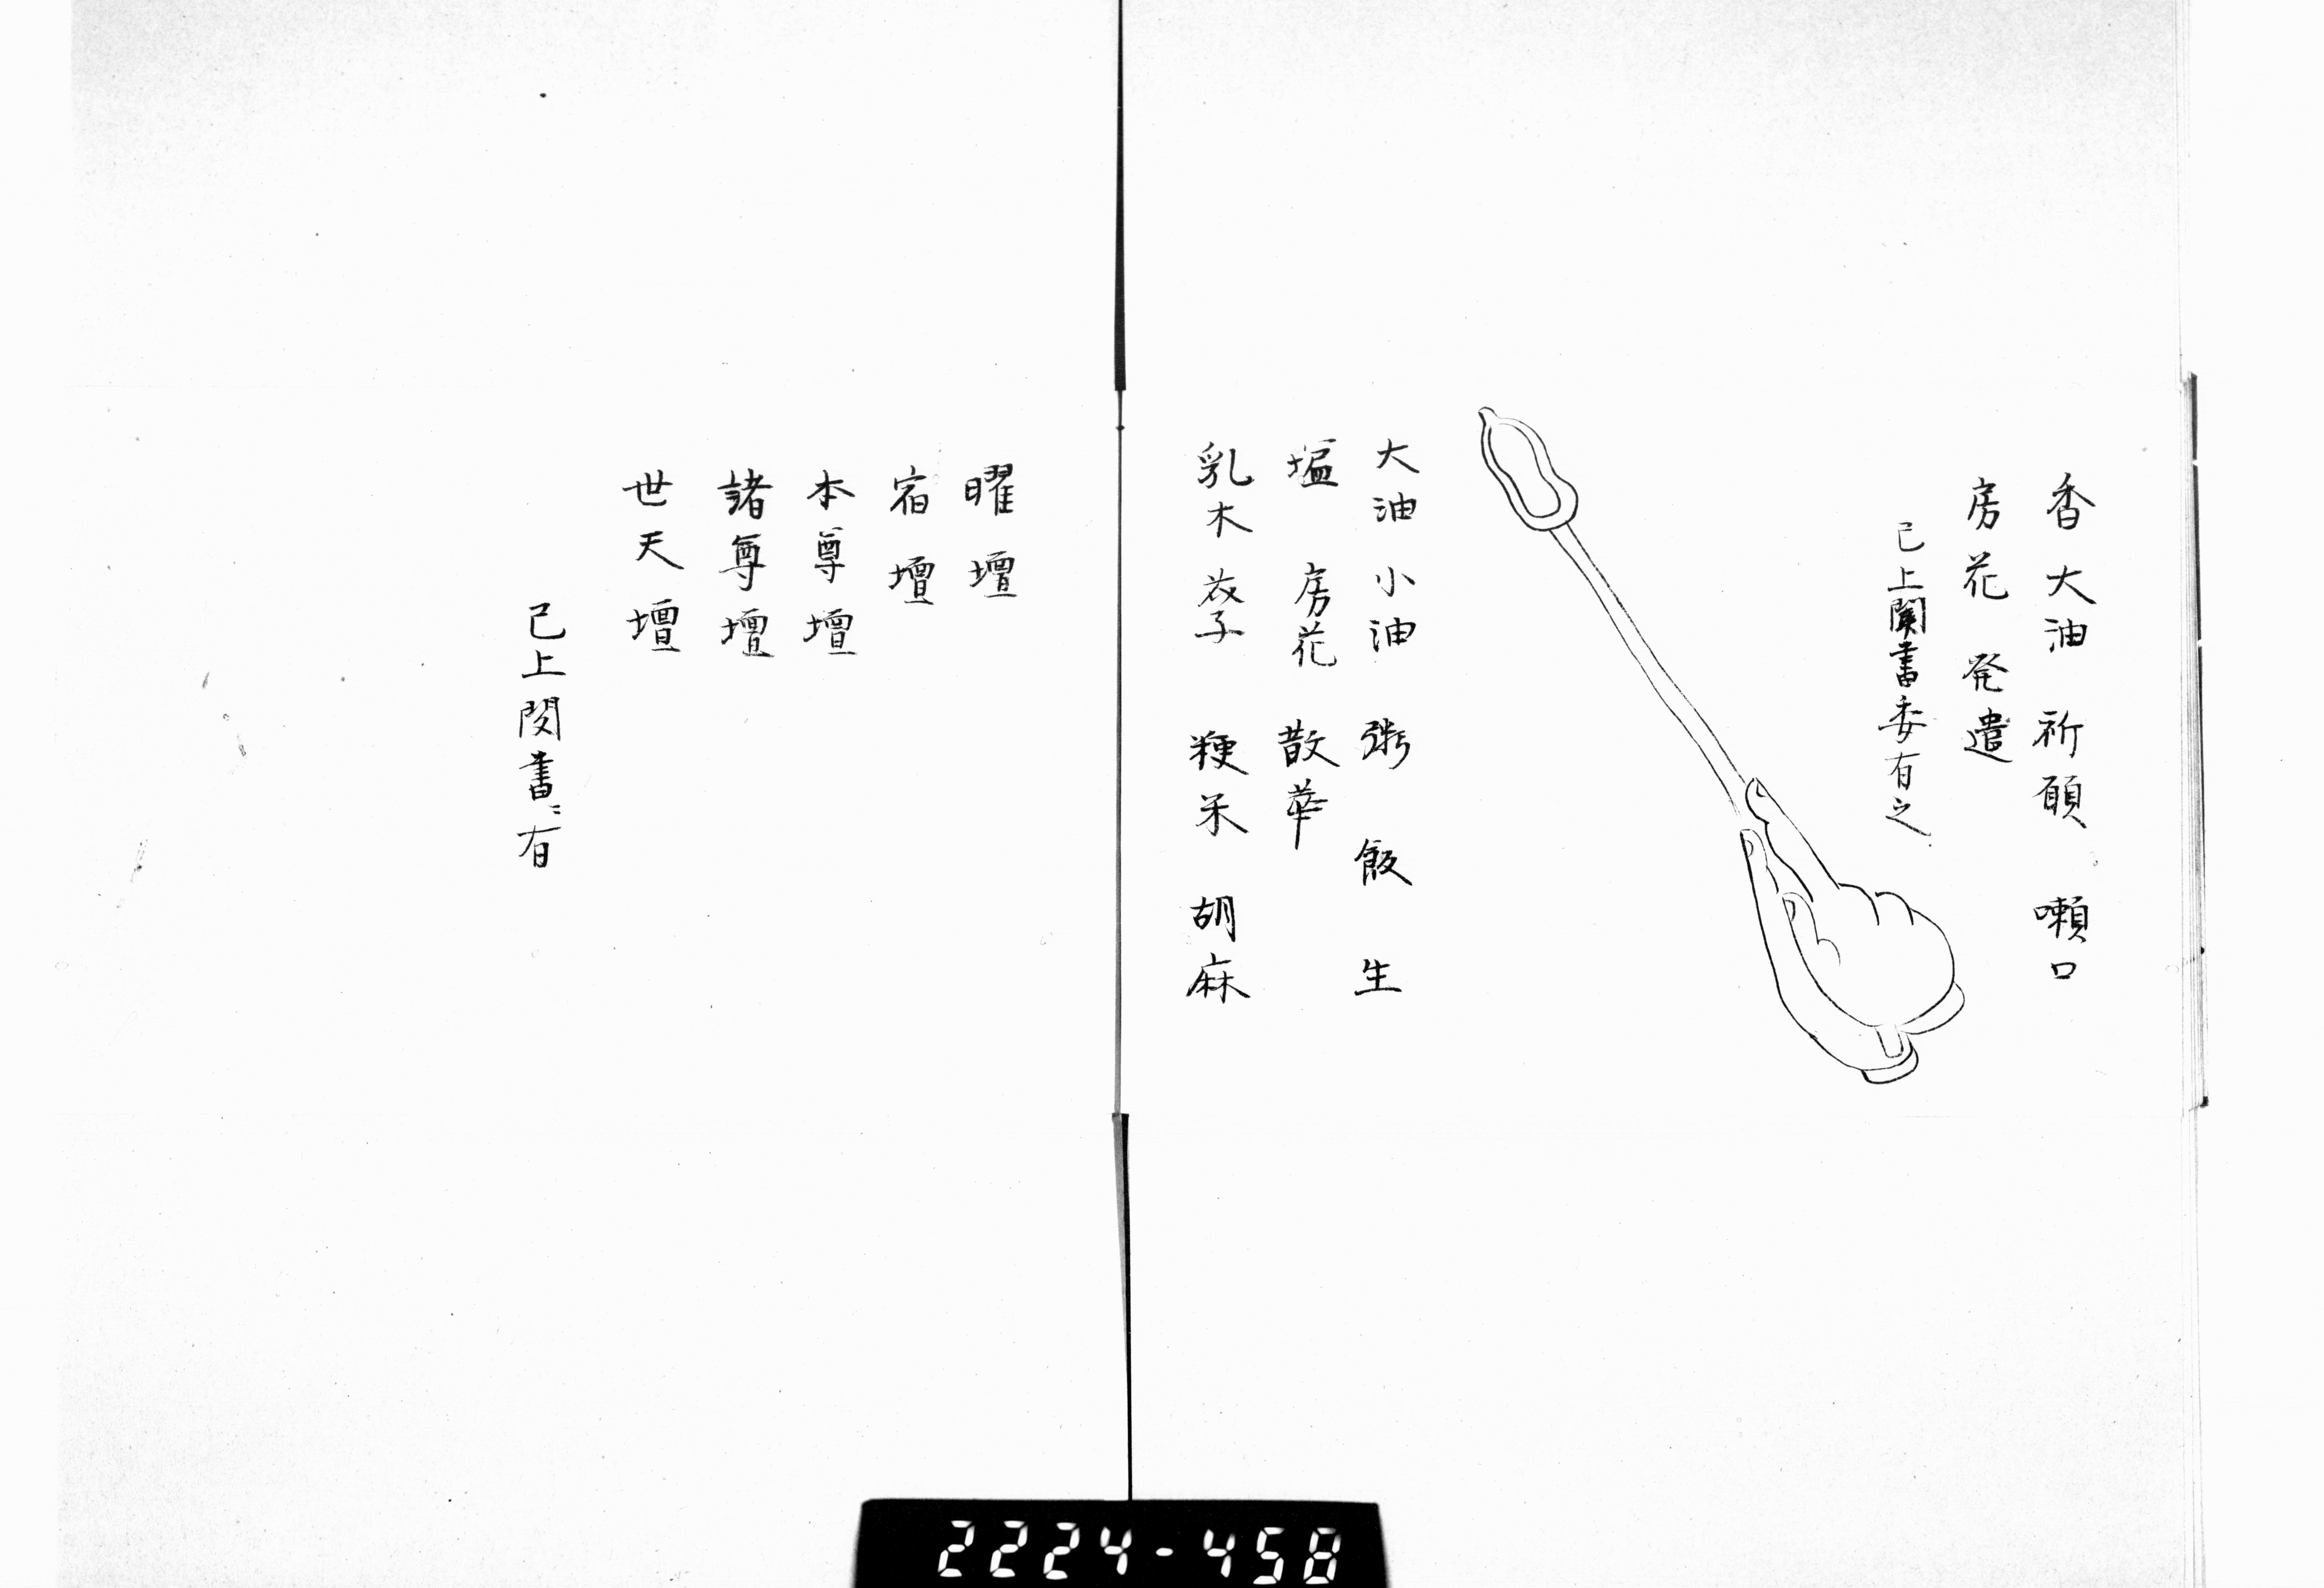 香 大油 祈願 嚫口
房花 発遣
已上聞書委有之
大油 小油 粥 飯 生
塩 房花 散華
乳木 芥子 粳米 胡麻
曜壇
宿壇
本尊壇
諸尊壇
世天壇
已上聞書ニ有
2224-458